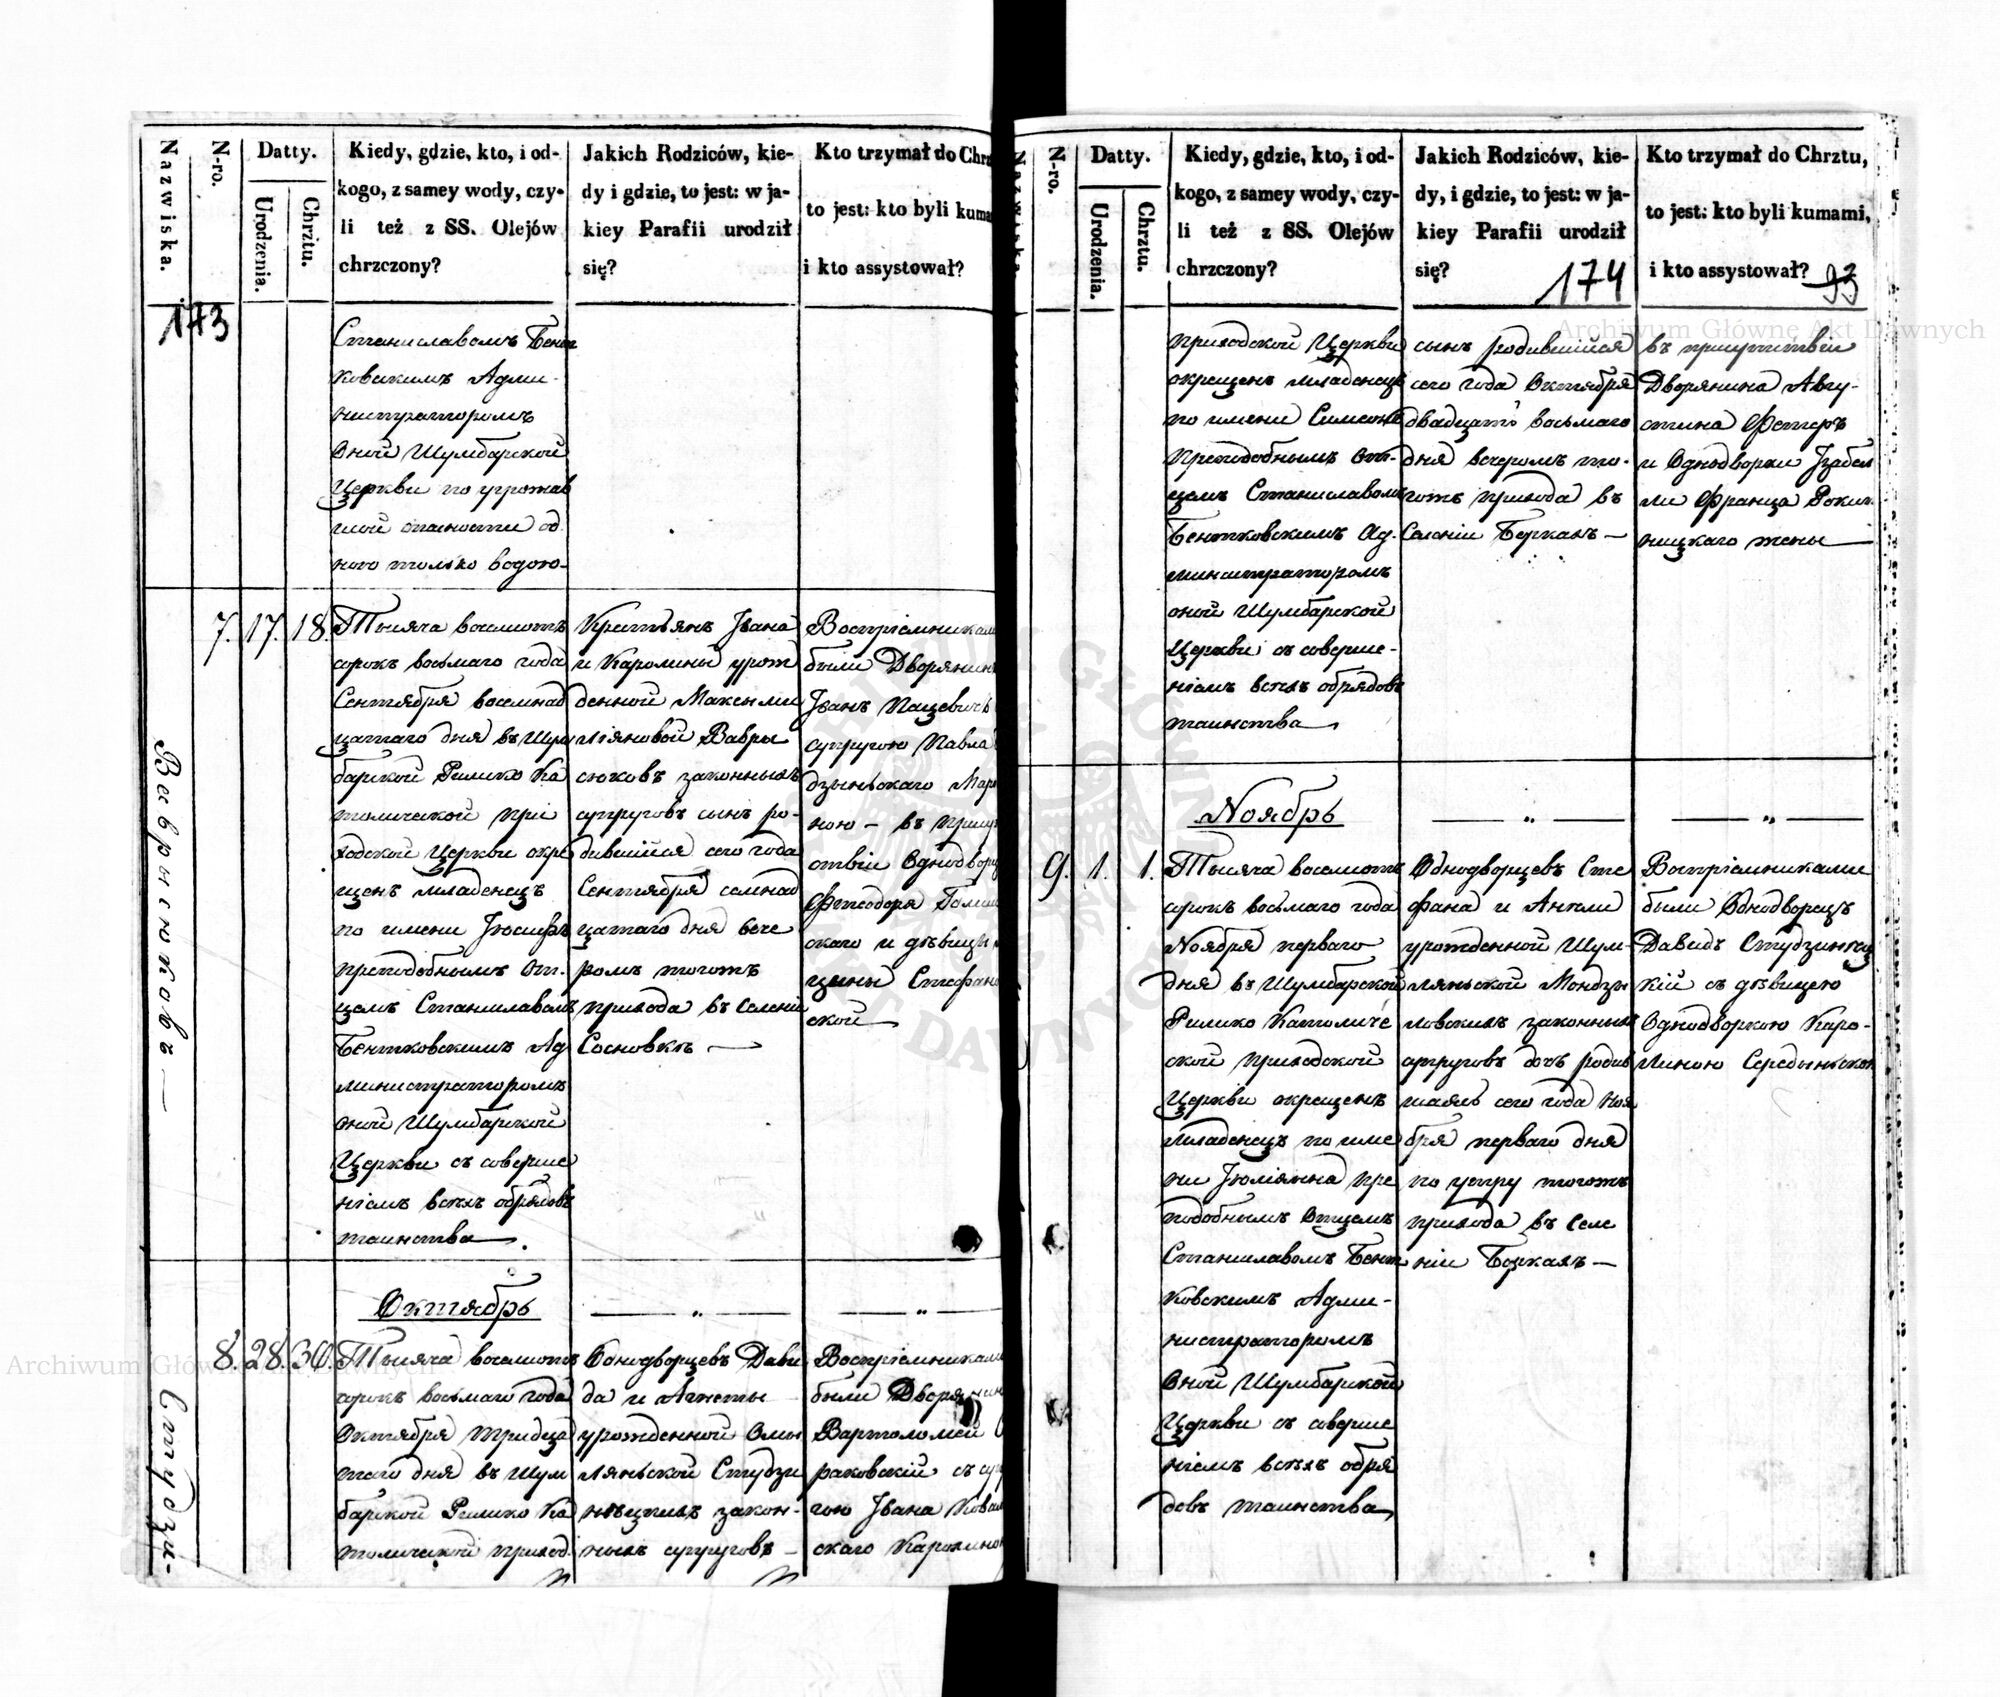 Nazwiska.
N-ro.
Datty.
Urodzenia.
Chrztu.
Kiedy, gdzie, kto, i od-
kogo, z samey wody, czy-
li też z SS. Olejów
chrzczony?
Jakich Rodziców, kie-
dy i gdzie, to jest: w ja-
kiey Parafii urodził
się?
Kto trzymał do Chrz
to jest: kto byli kuma
i kto assystował?
173
Станиславомъ Бент
ковскимъ Адми-
нистраторомъ
Оной Шумбарской
Церкви по угрожав
шей опасности од
ного только водою-
Ваврысюковъ —
7. 17. 18
Тысяча восемотъ
сорокъ восьмаго года
Сентября восемнад
цатаго дня въ Шум
барской Римско Ка
толической при
ходской Церкви окре
щенъ младенецъ
по имени Іосифъ
преподобнымъ От-
цемъ Станиславомъ
Бентковскимъ Ад
министраторомъ
оной Шумбарской
Церкви съ соверше
ніемъ всѣхъ обрядовъ
таинства
Крестьянъ Ивана
и Каролины урож
денной Максими
ліяновой Ваври
сюковъ законныхъ
супруговъ сынъ ро-
дившійся сего года
Сентября семнад
цатаго дня вече
ромъ тогожъ
прихода въ селеніи
Сосновкѣ —
Воспріемниками
были Дворянинъ
Іванъ Пацевичъ
супругою Павла
дзыньскаго Мар
ною — въ присут
ствіи Однодворц
Феодора
скаго и дѣвицы
цены Стефан
ской
Октябрь
— „ —
— „ —
Студзи-
8. 28. 30.
Тысяча восемотъ
сорокъ восьмаго года
Октября тридца
таго дня въ Шум
барской Римско Ка
толической приход
Однодворцевъ Дави
да и Агнеты
урожденной Смы
ляньской Студзи
нѣцкихъ закон-
ныхъ супруговъ —
Воспріемниками
были Дворянин
Вартоломей
раковскій съ суп
гою Ивана Ковал
скаго Каролиною
N-ro.
Datty.
Urodzenia.
Chrztu.
Kiedy, gdzie, kto, i od-
kogo, z samey wody, czy-
li też z SS. Olejów
chrzczony?
Jakich Rodziców, kie-
dy, i gdzie, to jest: w ja-
kiey Parafii urodził
się?
174
Kto trzymał do Chrztu,
to jest: kto byli kumami,
i kto assystował?
93
приходской Церкви
окрещенъ младенецъ
по имени Симеонъ
преподобнымъ От-
цемъ Станиславомъ
Бентковскимъ Ад-
министраторомъ
оной Шумбарской
Церкви съ соверше-
ніемъ всѣхъ обрядовъ
таинства
сынъ родившійся
сего года Октября
двадцать восьмаго
дня вечеромъ то-
гожъ прихода въ
Селеніи Терканъ —
въ присутствіи
Дворянина Авгу-
стина Фетеръ
и Однодворки Ізабел
ли Франца Рокит
ницкаго жены —
Ноябрь
— „ —
— „ —
9. 1. 1.
Тысяча восемотъ
сорокъ восьмаго года
Ноября перваго
дня въ Шумбарской
Римско Католиче
ской приходской
Церкви окрещенъ
младенецъ по име
ни Іюліянна пре
подобнымъ Отцемъ
Станиславомъ Бент
ковскимъ Адми-
нистраторомъ
Оной Шумбарской
Церкви съ соверше
ніемъ всѣхъ обря
довъ таинства
Однодворцевъ Сте
фана и Анели
урожденной Шум-
ляньской Мондзы
ловскихъ законныхъ
супруговъ дочь родив
шаясь сего года Ноя
бря перваго дня
по утру тогожъ
прихода въ Селе
ніи
Воспріемниками
были Однодворецъ
Давидъ Студзинѣц
кій съ дѣвицею
Однодворкою Каро-
линою Середыньскою
Archiwum Główne Akt Dawnych
Archiwum Główne Akt Dawnych